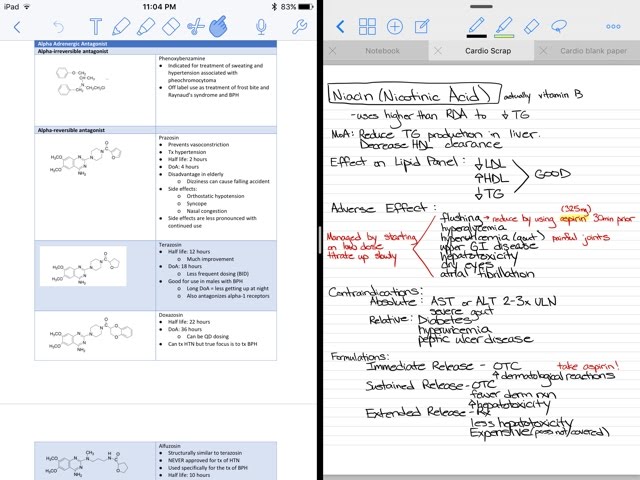 iPad
11:04 PM
83%
Alpha Adrenergic Antagonist
Alpha-irreversible antagonist
Phenoxybenzamine
Indicated for treatment of sweating and
hypertension associated with
pheochromcytoma
Off label use as treatment of frost bite and
Raynaud's syndrome and BPH
Alpha-reversible antagonist
Prazosin
Prevents vasoconstriction
Tx hypertension
Half life: 2 hours
DoA: 4 hours
Disadvantage in elderly
Dizziness can cause falling accident
Side effects:
Orthostatic hypotension
Syncope
Nasal congestion
Side effects are less pronounced with
continued use
Terazosin
Half life: 12 hours
Much improvement
DoA: 18 hours
Less frequent dosing (BID)
Good for use in males with BPH
Long DoA = less getting up at night
Also antagonizes alpha-1 receptors
Doxazosin
Half life: 22 hours
DoA: 36 hours
Can be QD dosing
Can tx HTN but true focus is to tx BPH
Alfuzosin
Structurally similar to terazosin
NEVER approved for tx of HTN
Used specifically for the tx of BPH
Half life: 10 hours
Notebook
Cardio Scrap
Cardio blank paper
Niacin (Nicotinic Acid) actually vitamin B
- uses higher than RDA to ↓ TG
MoA: Reduce TG production in liver.
Decrease HDL clearance
Effect on Lipid Panel: ↓ LDL
↑ HDL
↓ TG
GOOD
Adverse Effect:
(325mg)
flushing → reduce by using aspirin 30min prior
hyperglycemia
Managed by starting
on low dose
titrate up slowly
hyperuricemia (gout) painful joints
upper GI disease
hepatotoxicity
dry eyes
atrial fibrillation
Contraindications:
Absolute: AST or ALT 2-3x ULN
severe gout
Relative: Diabetes
hyperuricemia
peptic ulcer disease
Formulations:
Immediate Release - OTC take aspirin!
↑ dermatological reactions
Sustained Release - OTC
fewer derm rxn
↑ hepatotoxicity
Extended Release - Rx
less hepatotoxicity
Expensive (poss not/covered)